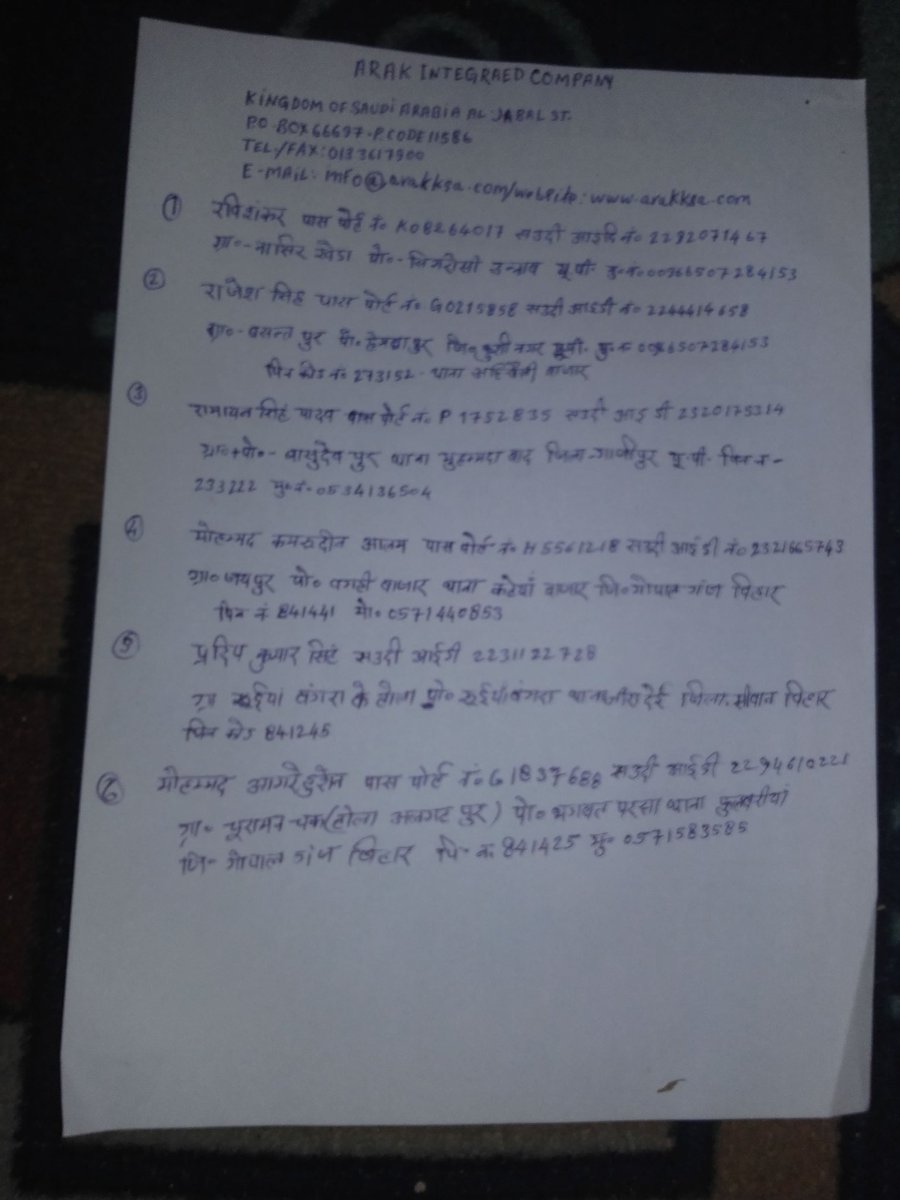 ARAK INTEGRAED COMPANY
KINGDOM OF SAUDI ARABIA AL JABAL ST.
P.O-BOX 66697-P.CODE 11586
TEL/FAX: 0133617900
E-MAIL: info@arakksa.com/website: www.arakksa.com
① रविशंकर पास पोर्ट नं० K08264017 सउदी आइदि नं० 2292071467
ग्रा०-नासिर खेडा पो०- उन्नाव यू.पी. मु.नं.00966507284153
② राजेश सिंह पास पोर्ट नं० G0215858 सउदी आईडी नं० 2244414658
ग्रा०-बसन्त पुर पो. जि० कुशी नगर यू.पी. मु.
पिन कोड नं० 273152- थाना बाजार
③ रामायन सिंह यादव पास पोर्ट नं. P1752835 सउदी आइ डी 2320175314
ग्रा०+पो०- वासुदेव पुर थाना मुहम्मदा वाद जिला-गाजीपुर यू.पी. पिन न-
233222 मु०नं-0534136504
④ मोहम्मद कमरुदीन आलम पास पोर्ट नं० H5561218 सउदी आई डी नं० 2321665743
ग्रा० जयपुर पो० बाजार थाना कटेयां बाजार जि० गोपाल गंज बिहार
पिन नं 841441 मो० 0571440853
⑤ प्रदिप कुमार सिंह सउदी आईडी 2231122728
ग्रा रूईयां वंगरा के टोला पो० रूईयां वंगरा थाना जिला. सीवान बिहार
पिन कोड 841245
⑥ मोहम्मद पास पोर्ट नं० G1837688 सउदी आईडी 2294610221
ग्रा० चूरामन चक (टोला पुर) पो० भगवत परसा थाना फुलवरीयां
जि० गोपाल गंज बिहार पि० क 841425 मु० 0571583585